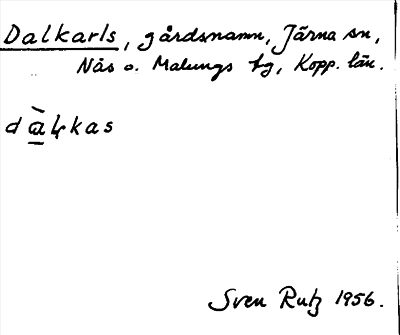 Dalkarls, gårdsnamn, Järna sn,
Nås o. Malungs tg, Kopp. län.
d à̱ ḷkas
Sven Rutz 1956.